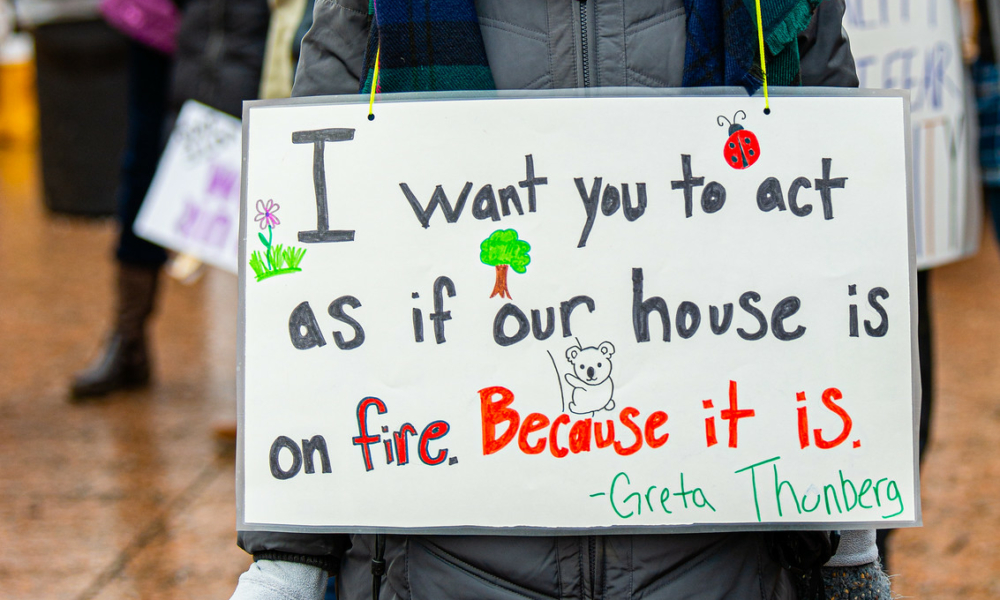 I want you to act
as if our house is
on fire. Because it is.
-Greta Thunberg